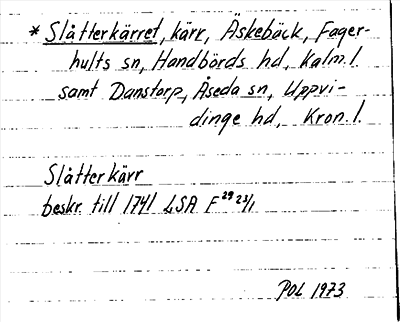 * Slåtterkärret, kärr, Äskebäck, Fager-
hults sn, Handbörds hd, Kalm. l.
samt Danstorp, Åseda sn, Uppvi-
dinge hd, Kron. l.
Slåtterkärr
beskr. till 1741 LSA F 29 23/1
POL 1973